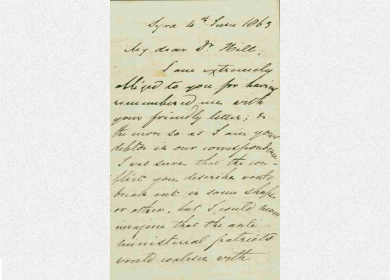 Syra 4th June 1863
My dear Dr Hill.
I am extremely
obliged to you for having
remembered me with
your friendly letter; &
the more so as I am your
debtor in our correspondence
I was sure that the con-
flict you describe would
break out in some shape
or other, but I could never
imagine that the anti-
ministerial patriots
would coalesce with